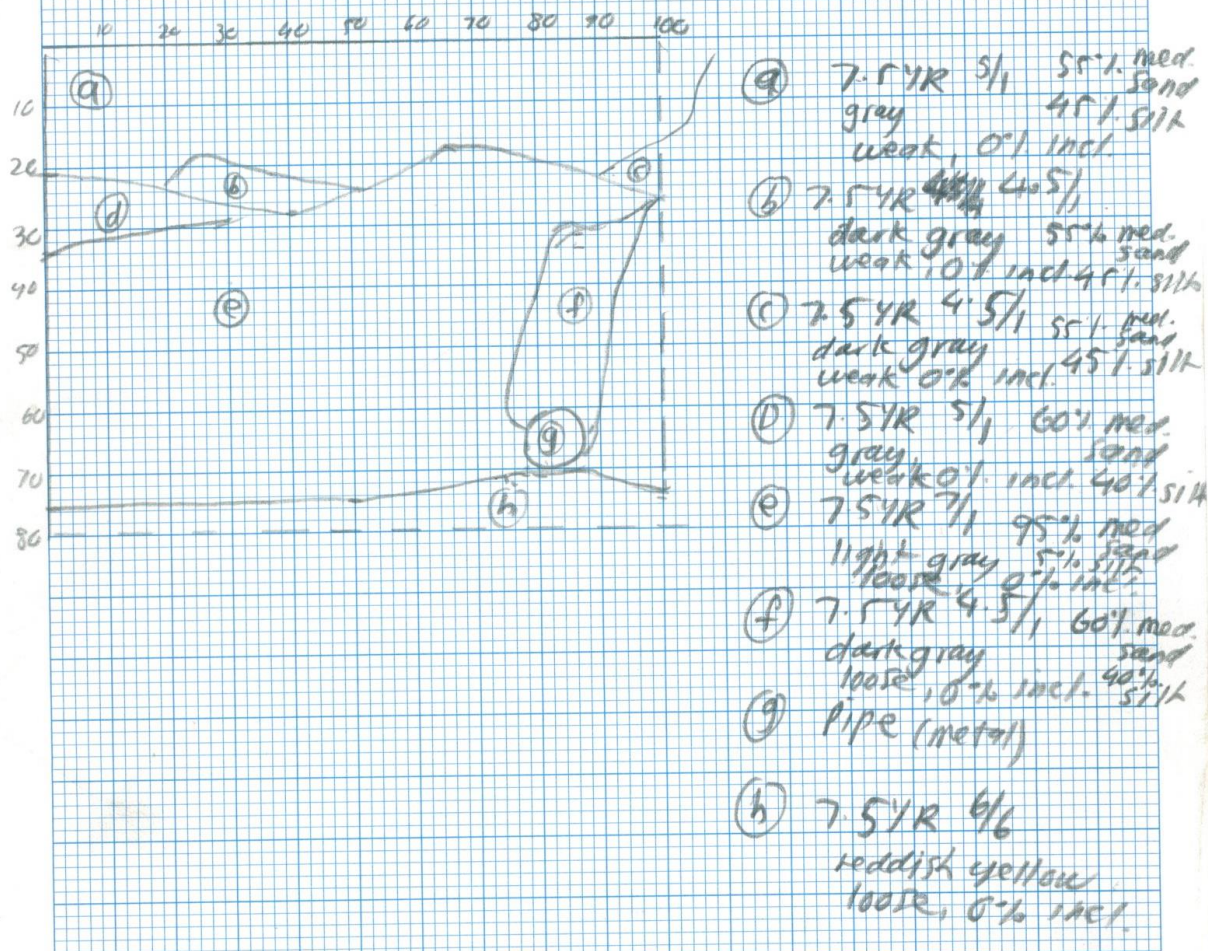 10 20 30 40 50 60 70 80 90 100
10
20
30
40
50
60
70
80
a
b
c
d
e
f
g
h
a 7.5YR 5/1 55% med.
sand
gray 45% silt
weak, 0% incl.
b 7.5YR 4.5/1
dark gray 55% med.
sand
weak, 0% incl. 45% silt
c 7.5YR 4.5/1 55% med.
sand
dark gray 45% silt
weak 0% incl.
D 7.5YR 5/1 60% med.
sand
gray,
weak 0% incl. 40% silt
e 7.5YR 7/1 95% med
sand
light gray 5% silt
loose, 0% incl.
f 7.5YR 4.5/1 60% med.
sand
dark gray
loose, 0% incl. 40%
silt
g Pipe (metal)
h 7.5YR 6/6
reddish yellow
loose, 0% incl.